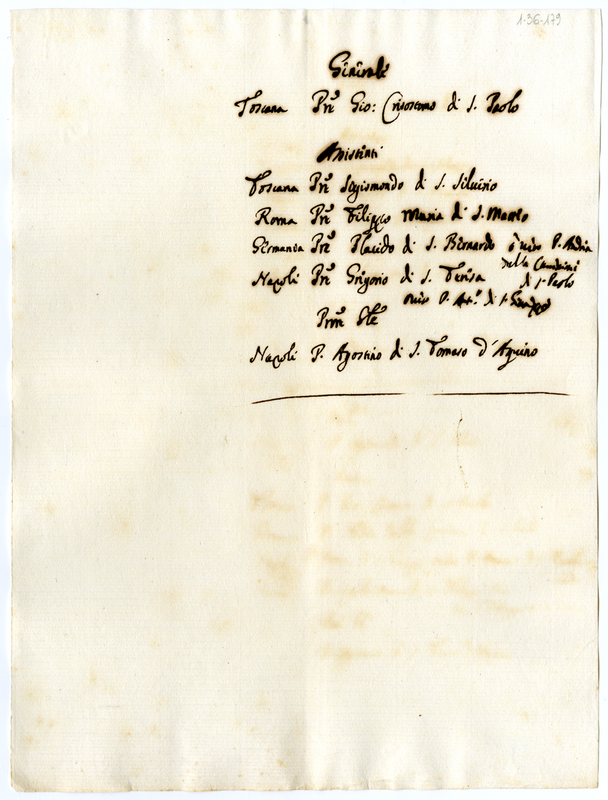 1-36-179
Generale
Toscana Pre Gio: Crisostomo di S. Paolo
Assistenti
Toscana Pre Sigismondo di S. Silverio
Roma Pre Filippo Maria di S.
Germania Pre Placido di S. Bernardo ò vero P. Andrea
della
Napoli Pre Gregorio di S. Teresa di S. Paolo
P. di S.
Napoli P. Agostino di S. Tomaso d'Aquino